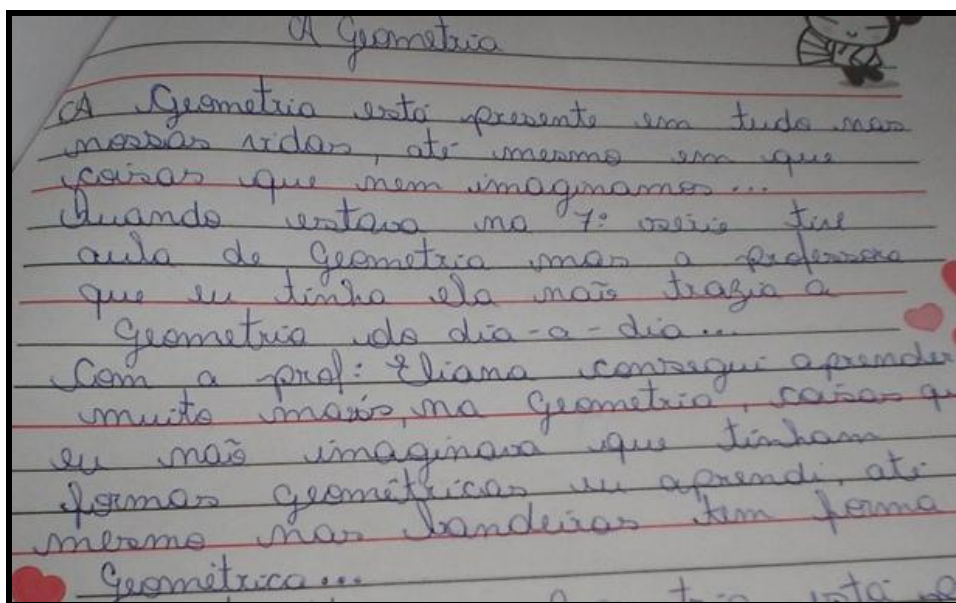 A Geometria
A Geometria está presente em tudo nas
nossas vidas, até mesmo em que
coisas que nem imaginamos...
Quando estava na 7ª série tive
aula de Geometria mas a professora
que eu tinha ela não trazia a
Geometria do dia-a-dia...
Com a prof: Eliana consegui aprender
muito mais, na Geometria, coisas q
eu não imaginava que tinham
formas geométricas eu aprendi, até
mesmo nas bandeiras tem forma
Geométrica...
está